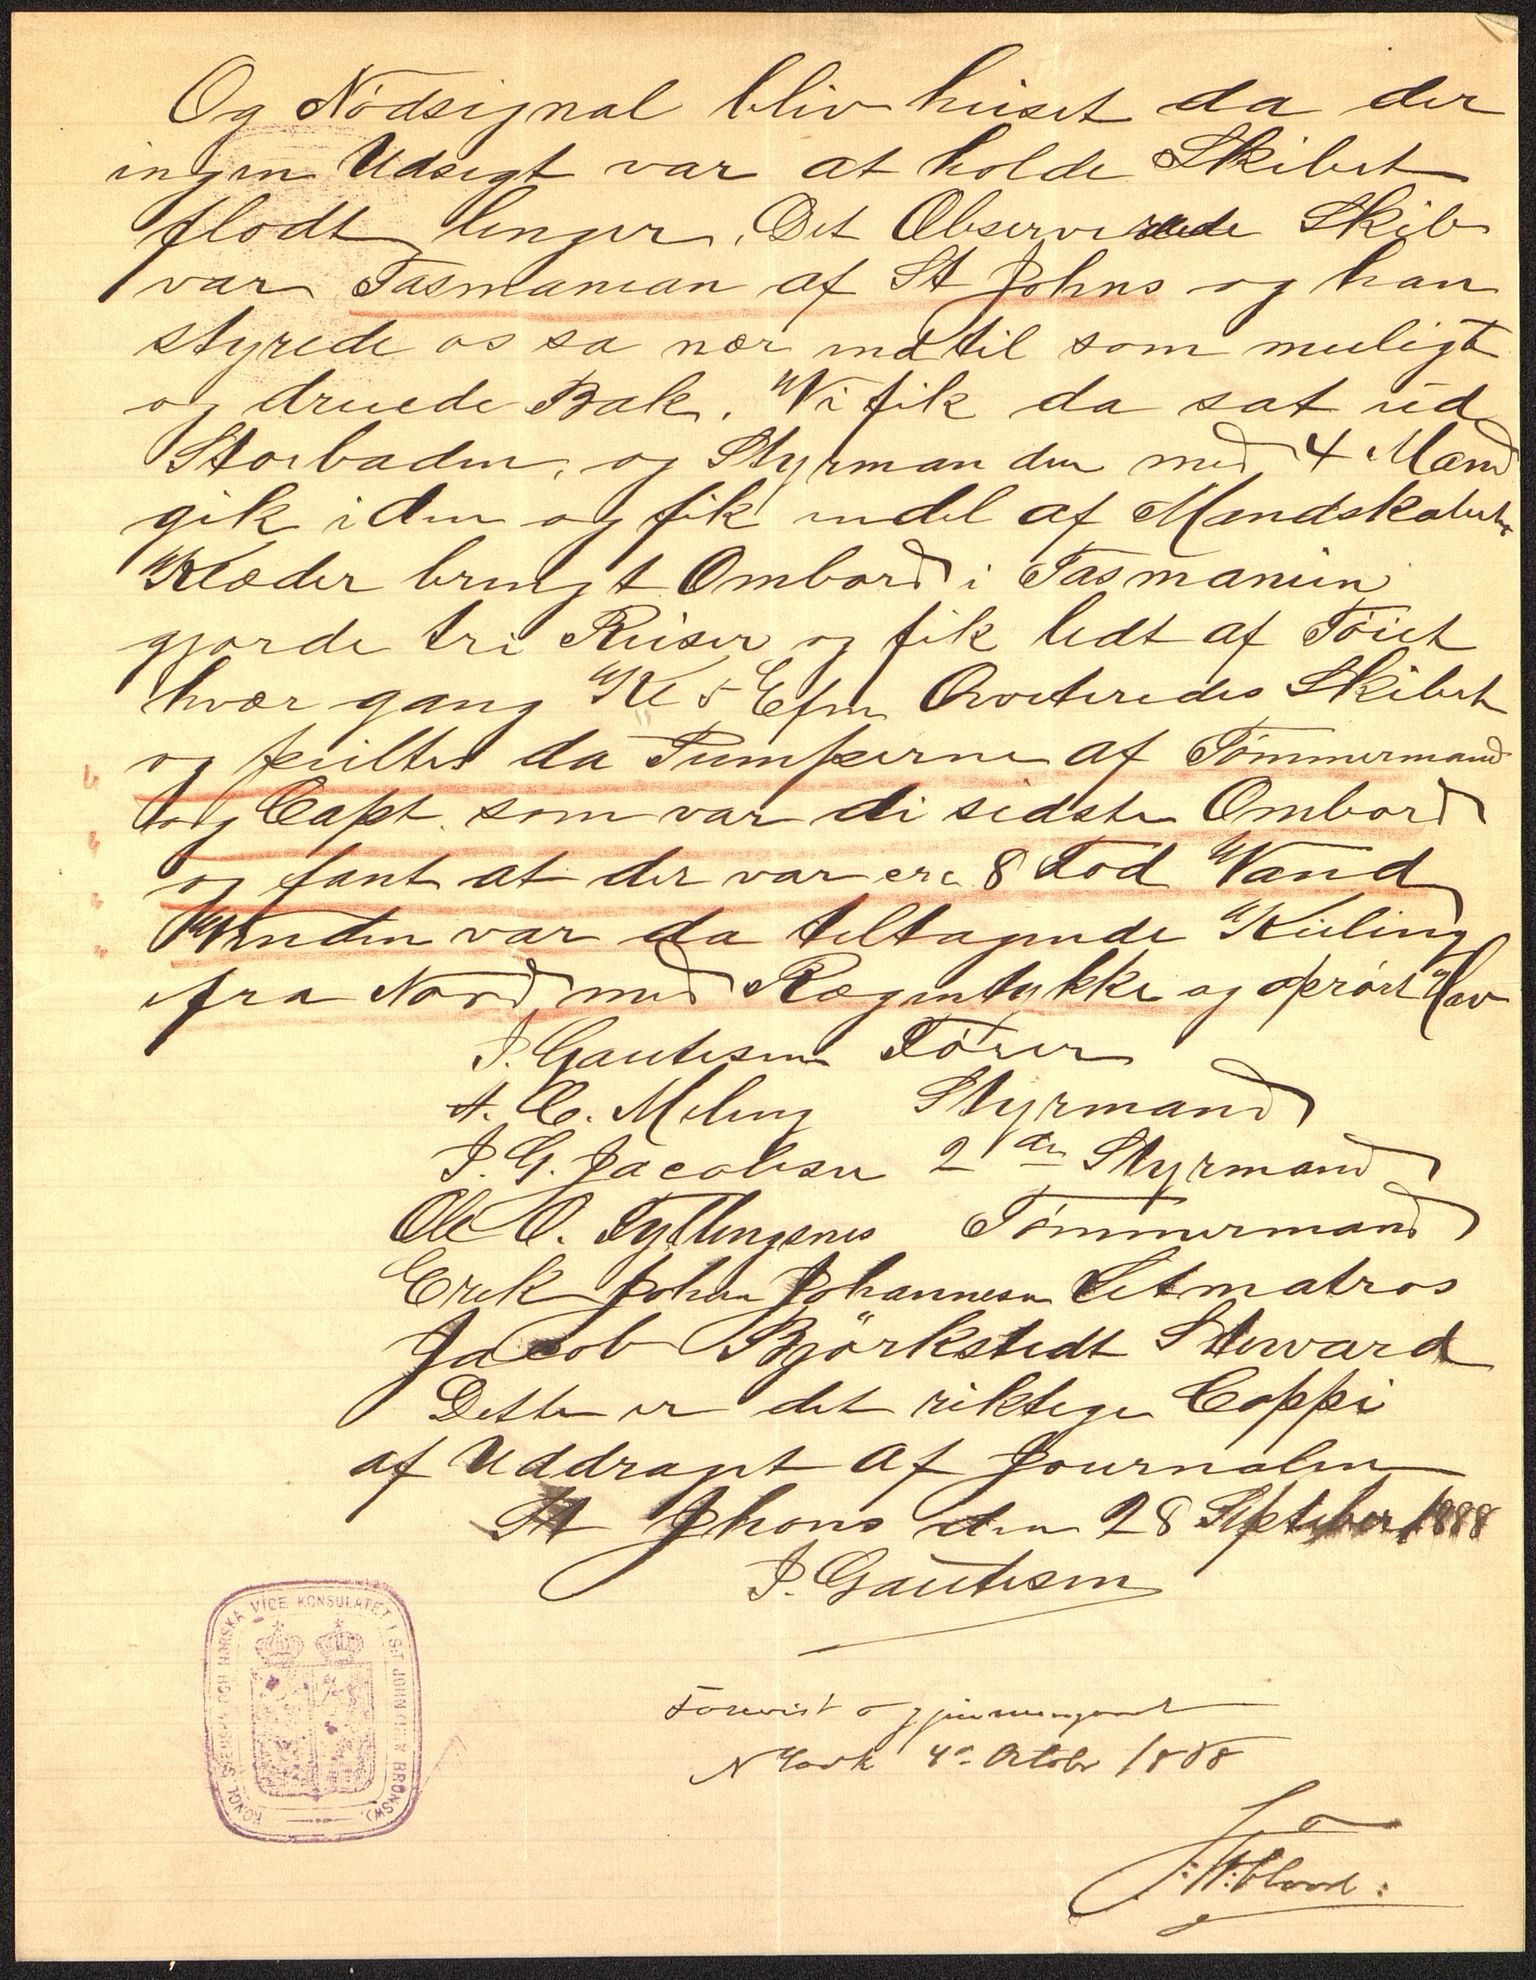 Og Nödsignal bliv heiset da der
ingen Udsegt var at holde Skibet
flodt lenger, Det Observerede Skib
var Tasmanian af St Johns og han
styrede os sa nær indtil som muligt
og dreiede Bak. Vi fik da sat ud
Storbaden, og Styrmanden med 4 Mænd
gik i den og fik endel af Mandskabets
Klæder bringt Ombord i Tasmanien
gjorde tre Reiser og fik ledt af Töiet
hvær gang Kl 5 Efm Qvoteredes Skibet
og peiltes da Pumperne af Tömmermand
og Capt. som var di sidste Ombord
og fant at der var cra 8 Fod Vand
Vinden var da teltagende Kuling
fra Nord med Rægntykke og oprört Hav
J. Gautesen Förer
A. C. Meling Styrmand
J. G. Jacobsen 2 den Styrmand
Ole O. Tyllingsnes Tömmermand
Erik Johan Johannesen Letmatros
Jacob Björkstedt Steward
Dette er det riktege Coppi
af Uddraget af Journalen
St Jhons den 28 Septeber 1888
J. Gautesen
KONGL. SVENSKA OCH NORSKA VICE KONSULATET I S:T JOHN (N. BRUNSW.)
Forevist og gjennemgaaet
N York 4de Octobr 1888